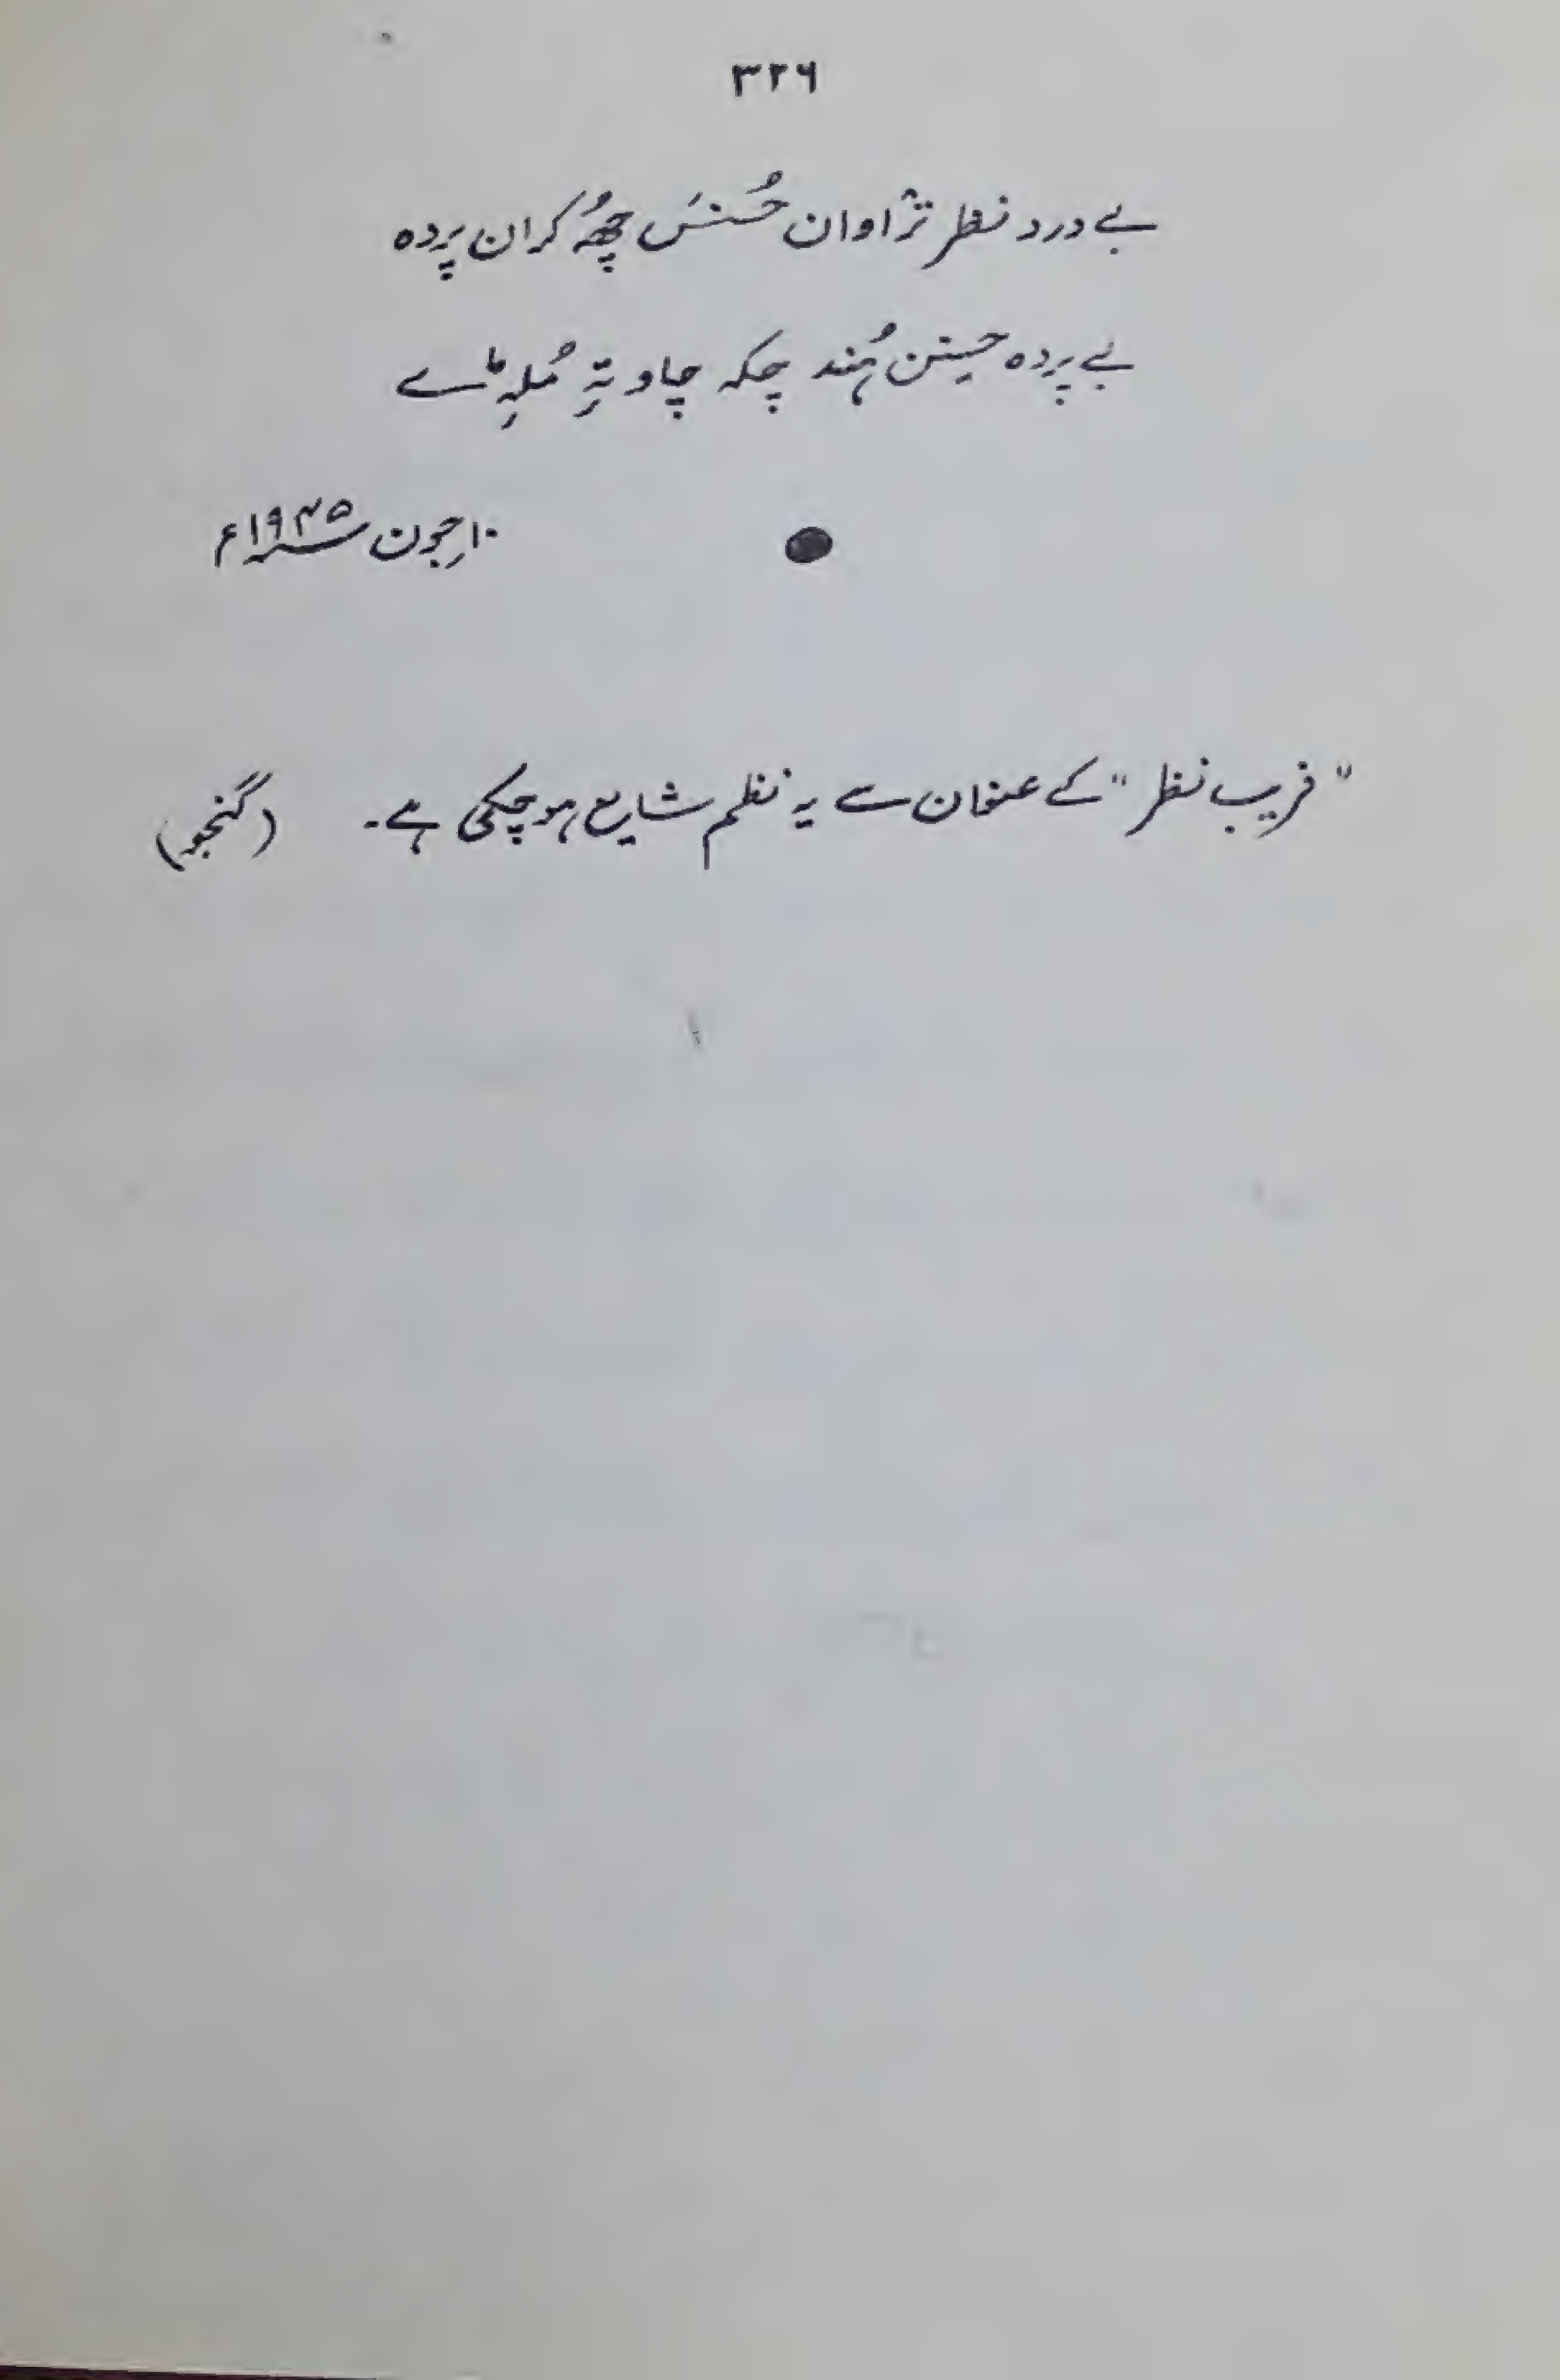 ۳۲۶
بے درد نظر ترٛاوان حُسنَس چھُہ کران پردہ
بے پردہ حسینن ہُند چکہ چاو تہِ مُلہِ ماے
۱۰ جون ۱۹۴۵ء
"فریب نظر" کے عنوان سے یہ نظم شایع ہوچکی ہے۔ (گنجو)